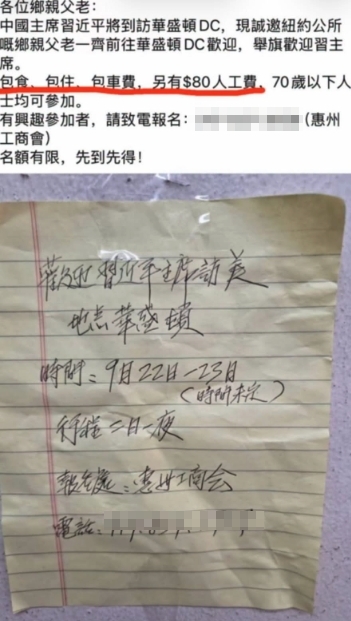 各位鄉親父老：
中國主席習近平將到訪華盛頓DC，現誠邀紐約公所
嘅鄉親父老一齊前往華盛頓DC歡迎，舉旗歡迎習主
席。
包食、包住、包車費，另有$80人工費，70歲以下人
士均可參加。
有興趣參加者，請致電報名：（惠州
工商會）
名額有限，先到先得！
歡迎習近平主席訪美
地点華盛頓
時間：9月22日-23日
（時間未定）
行程二日一夜
報名處：惠州工商会
電話：